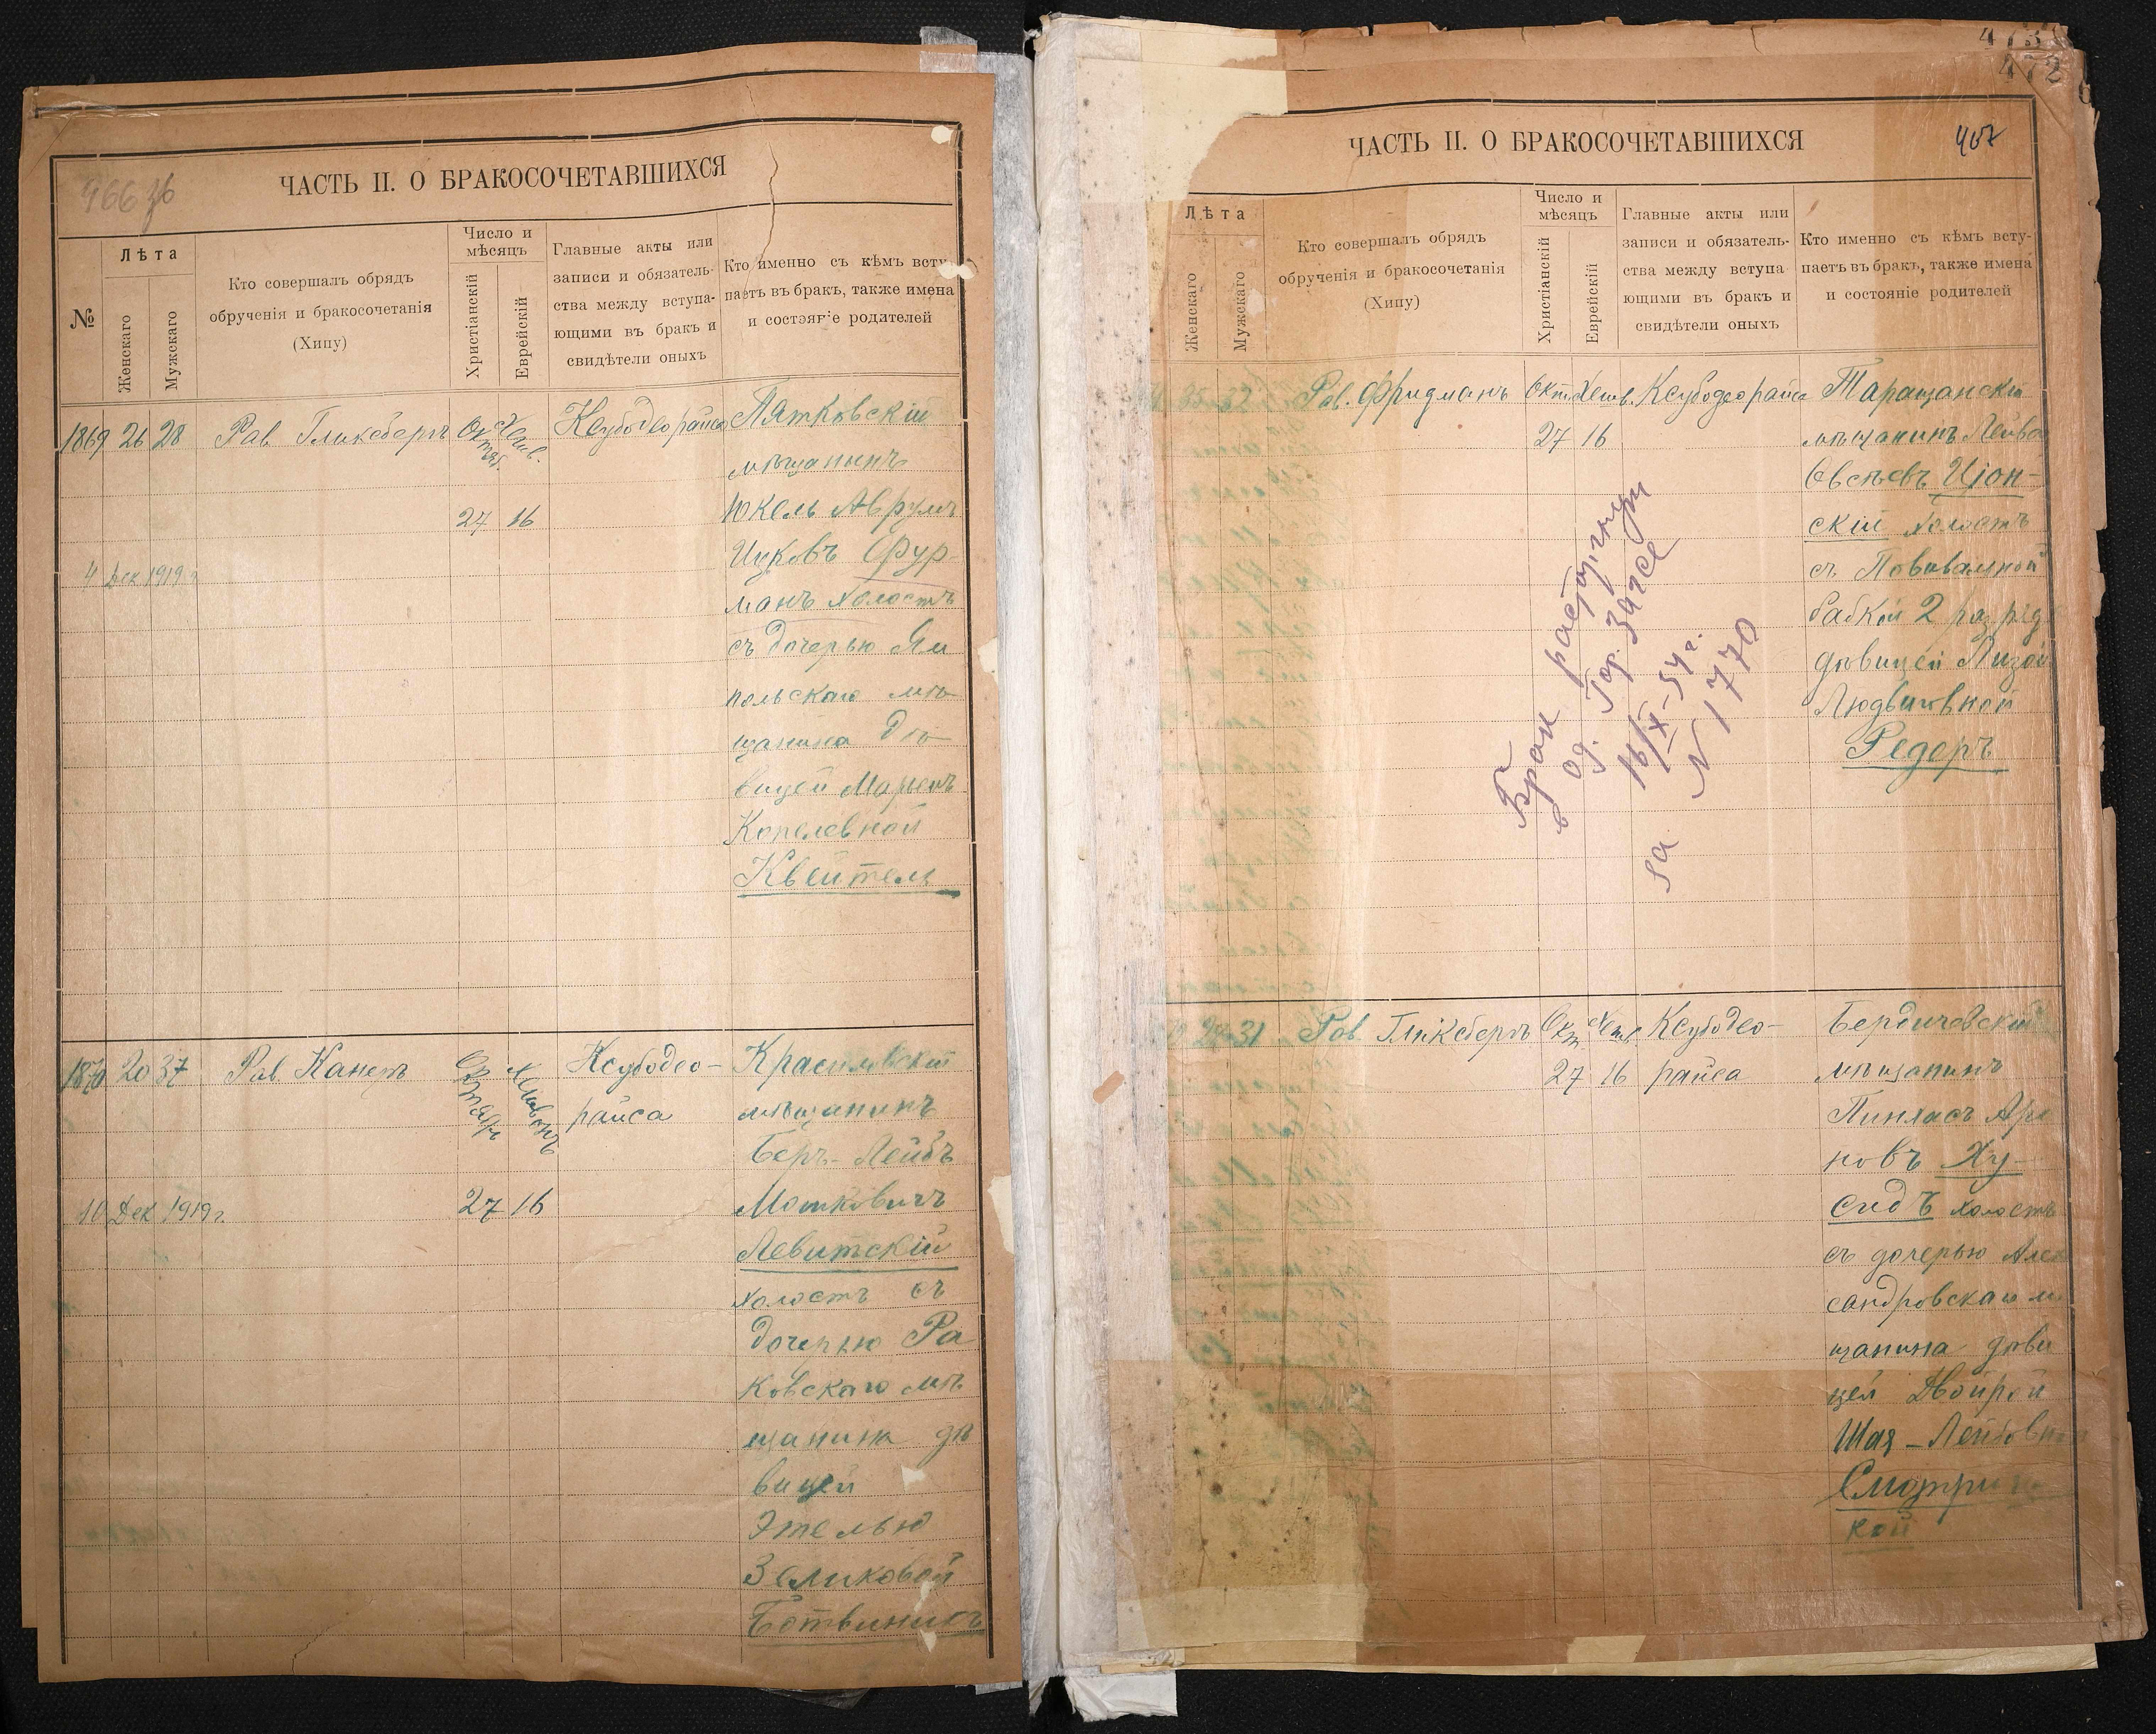 966 зб
ЧАСТЬ II. О БРАКОСОЧЕТАВШИХСЯ
№
Лѣта
Женскаго
Мужскаго
Кто совершалъ обрядъ
обрученія и бракосочетанія
(Хипу)
Число и
мѣсяцъ
Христіанскій
Еврейскій
Главные акты или
записи и обязатель-
ства между вступа-
ющими въ бракъ и
свидѣтели оныхъ
Кто именно съ кѣмъ всту-
паетъ въ бракъ, также имена
и состояніе родителей
1869 26 28 Рав. Гликсбергъ Октяб. Хешв. Ксубодеорайса
27 16
4 Дек 1919 г
Пятковскій
мѣщанинъ
Юкель Аврумъ
Ицковъ Фур-
манъ холостъ
съ дочерью Ям
польскаго мѣ-
щанина дѣ-
вицей Марьемъ
Копелевной
Квейтель
1870 20 37 Рав. Канеръ Октября Хешвонъ Ксубодео-
райса
27 16
10 Дек 1919 г.
Красиловскій
мѣщанинъ
Беръ-Лейбъ
Мошковичъ
Левитскій
холостъ съ
дочерью Ра
ковскаго мѣ
щанина дѣ
вицей
Этелью
Зеликовой
Ботвиникъ
473
472
ЧАСТЬ II. О БРАКОСОЧЕТАВШИХСЯ
467
Лѣта
Женскаго
Мужскаго
Кто совершалъ обрядъ
обрученія и бракосочетанія
(Хипу)
Число и
мѣсяцъ
Христіанскій
Еврейскій
Главные акты или
записи и обязатель-
ства между вступа
ющими въ бракъ и
свидѣтели оныхъ
Кто именно съ кѣмъ всту-
паетъ въ бракъ, также имена
и состояніе родителей
35 32 Рав. Фридманъ Окт Хешв. Ксубодеорайса
27 16
Таращанскій
мѣщанинъ Лейба
Овсѣевъ Ціон-
скій холостъ
съ Повивальной
бабкой 2 разряд
дѣвицей Лизой
Людвиговной
Редеръ
Брак расторгнут
в Од. Гор. Загсе
16/X-54 г.
за № 1770
31 Рав. Гликсбергъ Окт. Хешв. Ксубодео-
27 16 райса
Бердичевскій
мѣщанинъ
Пинхасъ Аро
новъ Ху-
сидъ холостъ
съ дочерью Алек
сандровскаго м
щанина дѣви
цей Двойрой
Шая-Лейбовн
Смотриц
кой